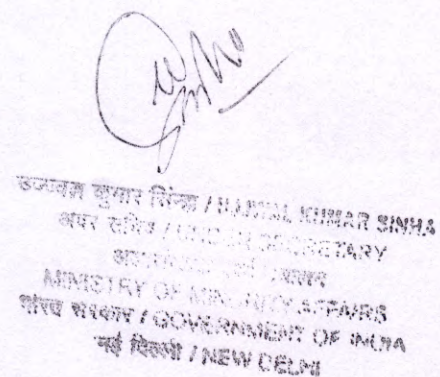 Sinha
उज्ज्वल कुमार सिन्हा / UJJWAL KUMAR SINHA
अवर सचिव / UNDER SECRETARY
MINISTRY OF MINORITY AFFAIRS
भारत सरकार / GOVERNMENT OF INDIA
नई दिल्ली / NEW DELHI